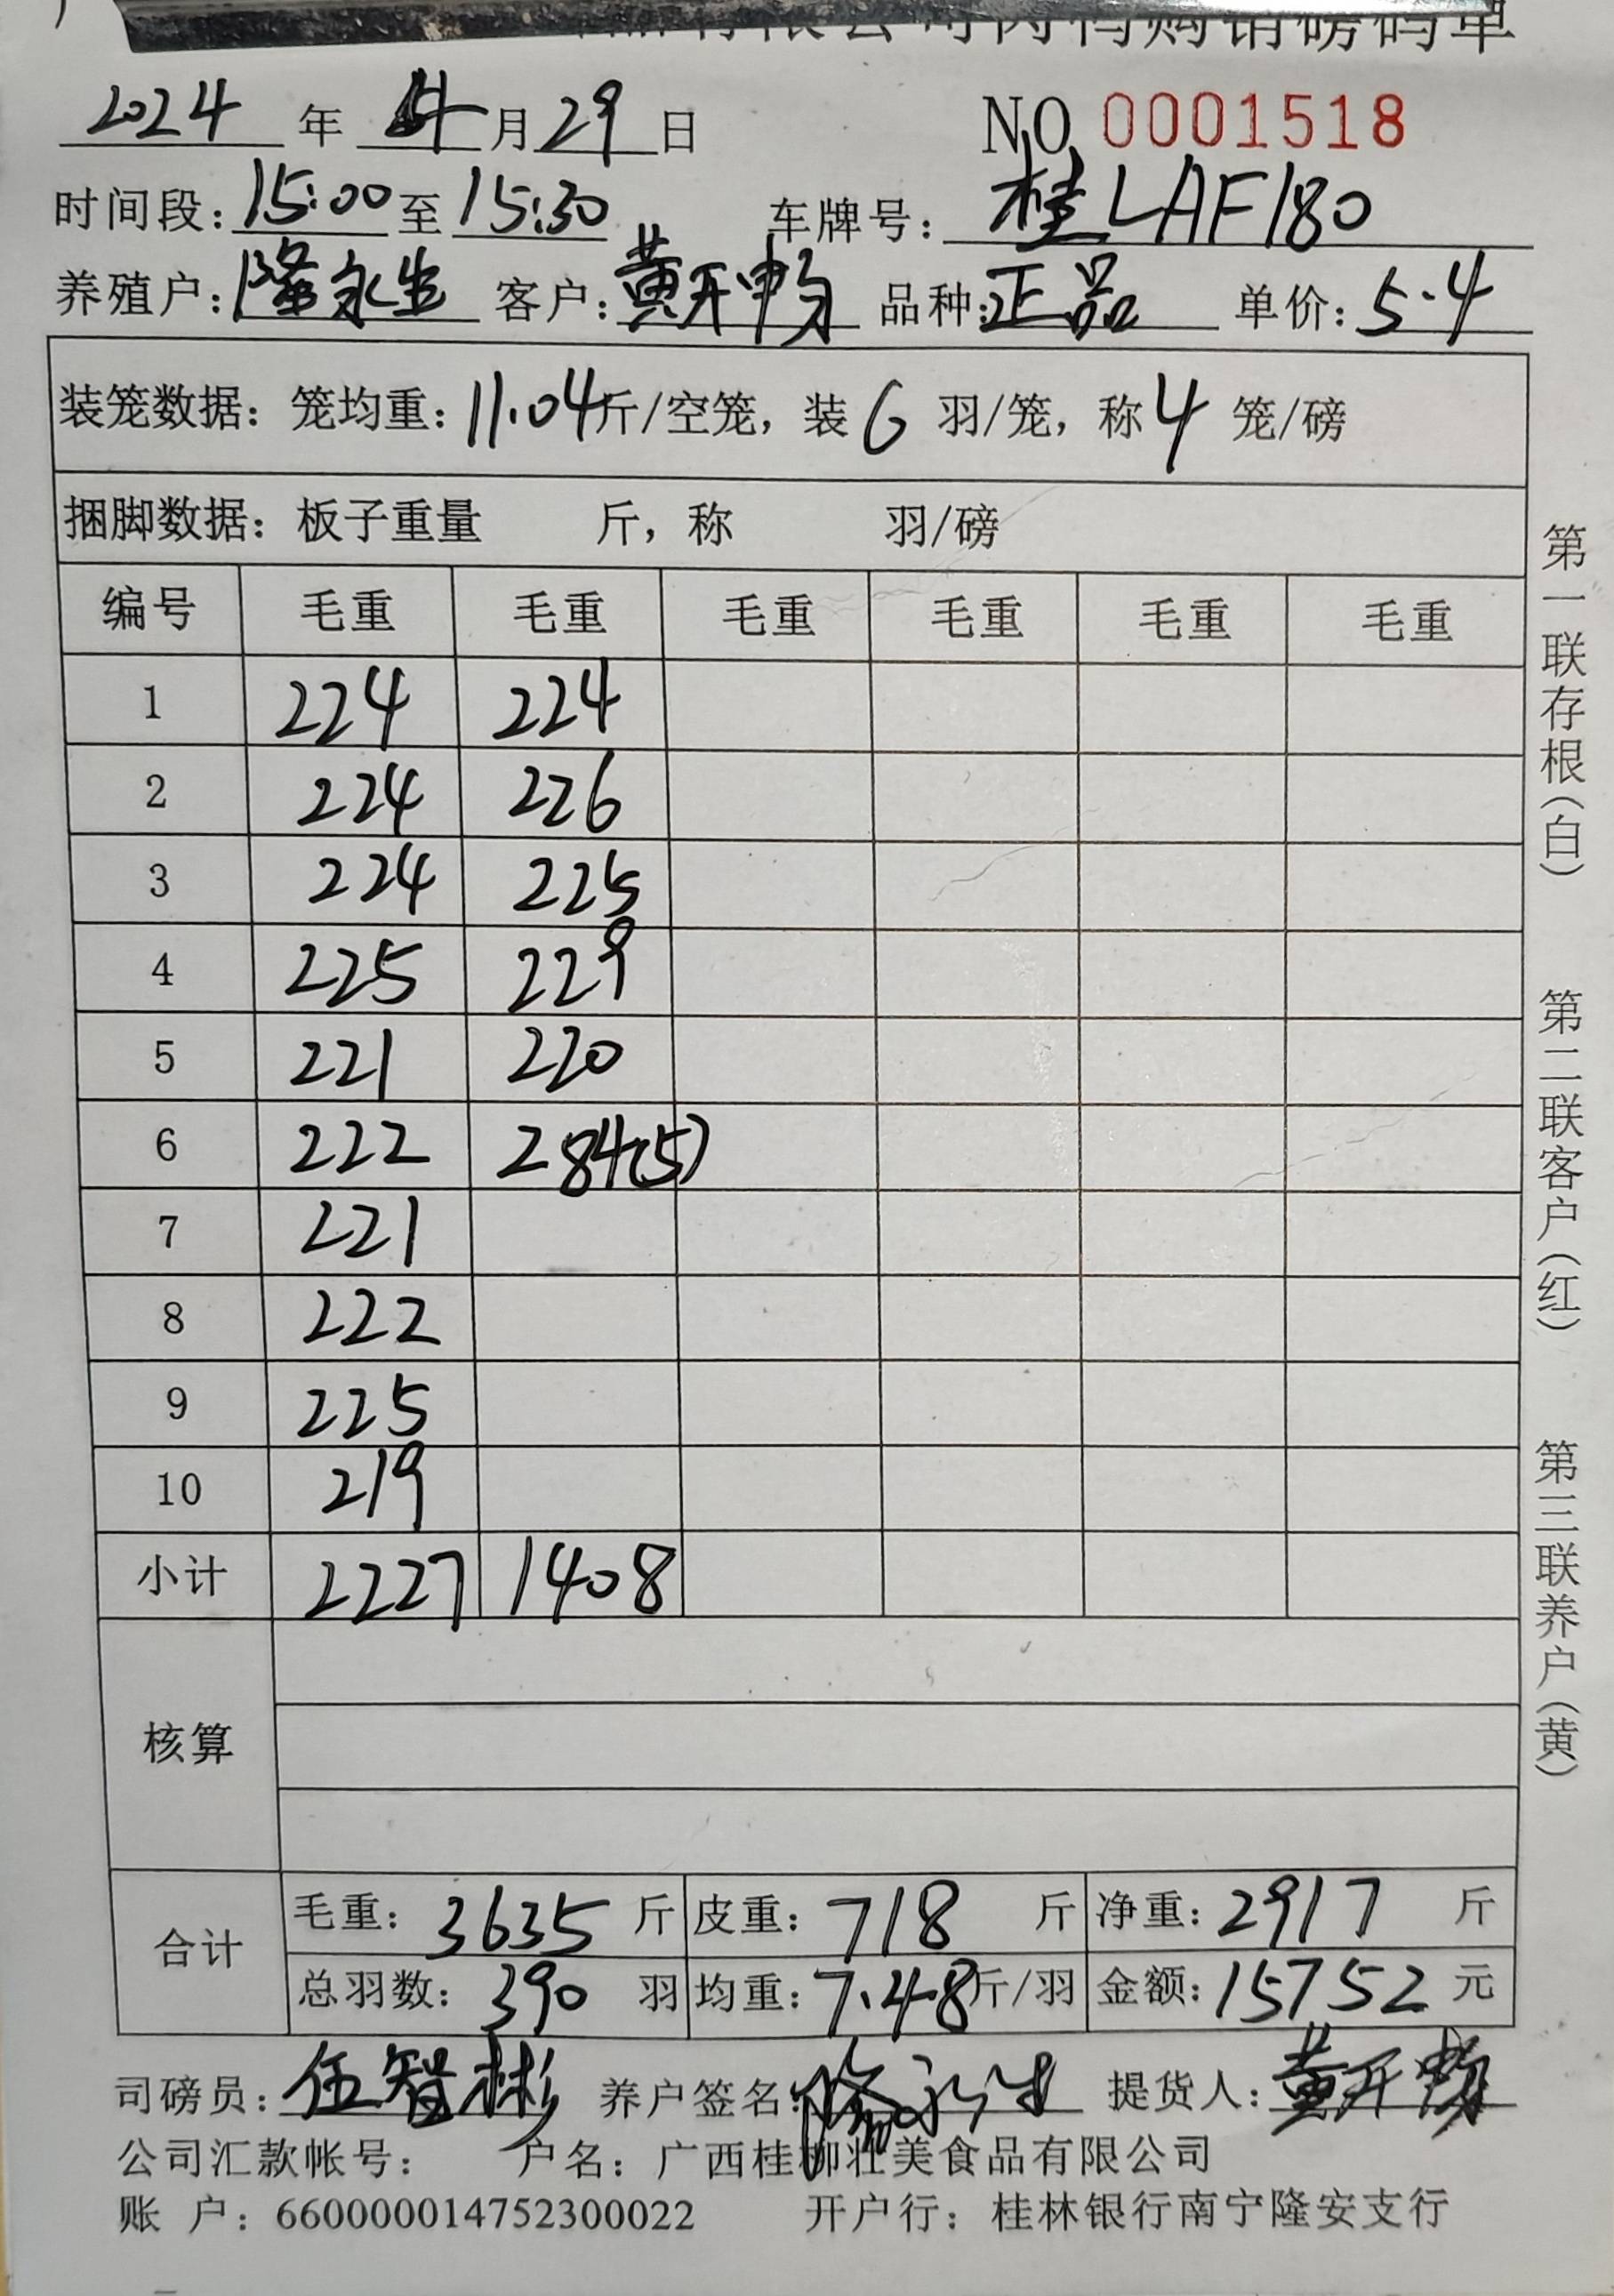 有限公司肉鸭购销磅码单
2024 年 4 月 29 日 NO 0001518
时间段: 15:00 至 15:30 车牌号: 桂LAF180
养殖户: 隆永生 客户: 黄开 品种: 正品 单价: 5.4
装笼数据: 笼均重: 11.04 斤/空笼, 装 6 羽/笼, 称 4 笼/磅
捆脚数据: 板子重量 斤, 称 羽/磅
编号 毛重 毛重 毛重 毛重 毛重 毛重
1 224 224
2 224 226
3 224 225
4 225 229
5 221 220
6 222 284(5)
7 221
8 222
9 225
10 219
小计 2227 1408
核算
合计
毛重: 3635 斤 皮重: 718 斤 净重: 2917 斤
总羽数: 390 羽 均重: 7.48 斤/羽 金额: 15752 元
司磅员: 伍智彬 养户签名: 隆永生 提货人: 黄开
公司汇款帐号: 户名: 广西桂柳壮美食品有限公司
账 户: 660000014752300022 开户行: 桂林银行南宁隆安支行
第一联存根(白)
第二联客户(红)
第三联养户(黄)